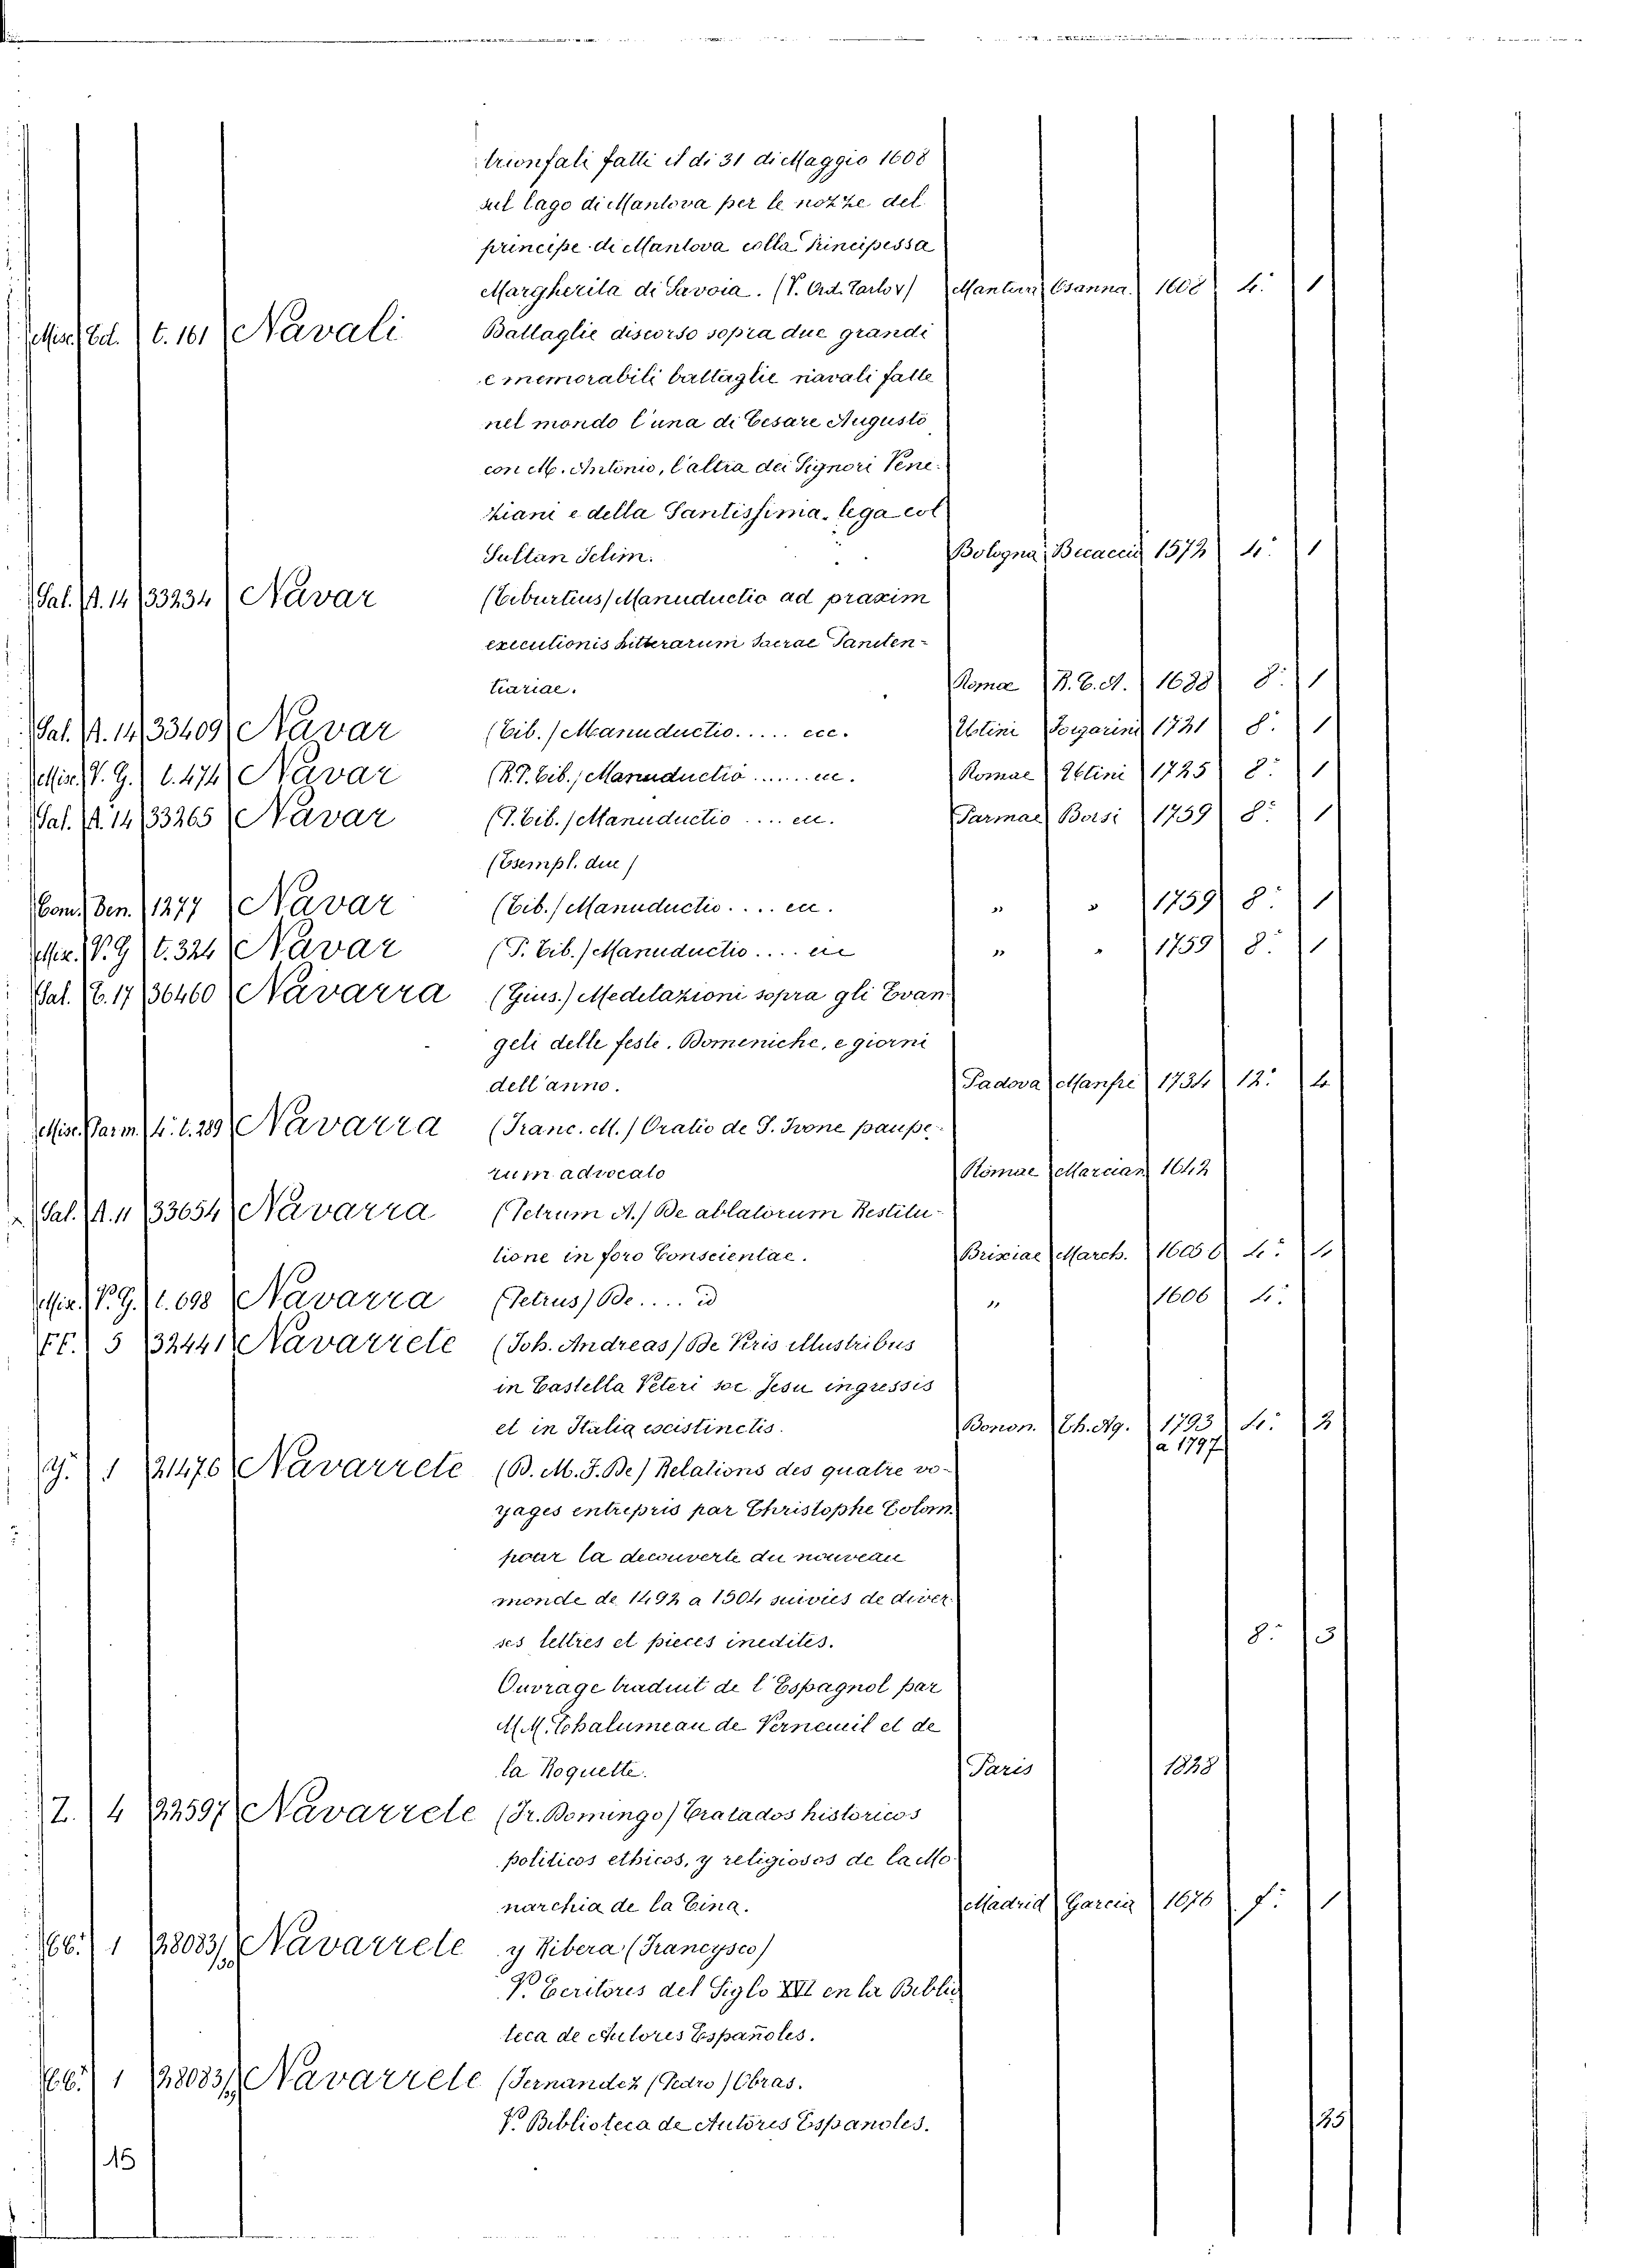 trionfali fatti il di 31 di Maggio 1608
sul lago di Mantova per le nozze del
principe di Mantova colla Principessa
Margherita di Savoia. (V. Ord. Tarlov) Mantova Osanna 1608 4:° 1
Misc. Ed. t. 161 Navali Battaglie discorso sopra due grandi
e memorabili battaglie navali fatte
nel mondo l'una di Cesare Augusto
con M. Antonio, l'altra dei Signori Vene
ziani e della Santissima lega col
Sultan Selim. Bologna Becaccia 1572 4:° 1
Sal. A. 14 33234 Navar (Tiburtius) Manuductio ad praxim
executionis Litterarum Sacrae Paniten-
tiariae. Romae R. C. A. 1688 8:° 1
Sal. A. 14 33409 Navar (Tib.) Manuductio..... ecc. Utini Fogarini 1721 8:° 1
Misc. V. G. t. 474 Navar (R. P. Tib.) Manuductio ...... ecc. Romae Utini 1725 8:° 1
Sal. A. 14 33265 Navar (P. Tib.) Manuductio .... ecc. Parmae Borsi 1759 8:° 1
(Esempl. due)
Com. Ben. 1277 Navar (Tib.) Manuductio .... ecc. " " 1759 8:° 1
Misc. V. G t. 324 Navar (P. Tib.) Manuductio .... ecc " " 1759 8:° 1
Sal. C. 17 36460 Navarra (Gius.) Meditazioni sopra gli Evan
geli delle feste. Domeniche, e giorni
dell'anno. Padova Manfrè 1734 12:° 4
Misc. Parm. 4:° t. 289 Navarra (Franc. M.) Oratio de S. Ivone paupe
rum advocato Romae Marcian 1642
Sal. A. 11 33654 Navarra (Petrum A.) De ablatorum Restitu-
tione in foro Conscientae. Brixiae March. 1605 6 4:° 4
Misc. V. G. t. 698 Navarra (Petrus) De .... id " 1606 4:°
FF. 5 32441 Navarrete (Joh. Andreas) De Viris illustribus
in Castella Veteri soc. Jesu ingressis
et in Italia escistinctis. Bonon. Th. Ag. 1793 a 1797 4:° 2
G. 1 21476 Navarrete (D. M. F. De) Relations des quatre vo-
yages entrepris par Christophe Colom.
pour la decouverte du nouveau
monde de 1492 a 1504 suivies de diver
ses lettres et pieces inedites. 8:° 3
Ouvrage traduit de l'Espagnol par
M. M. Chalumeau de Verneuil et de
la Roquette. Paris 1828
Z. 4 22597 Navarrete (Fr. Domingo) Tratados historicos
politicos ethicos, y religiosos de la Mo
narchia de la Cina. Madrid Garcia 1676 f:° 1
CC. 1 28083/30 Navarrete y Ribera (Francysco)
V. Ecritores del Siglo XVII en la Biblio
teca de Autores Españoles.
CC. 1 28083/ Navarrete (Fernandez (Pedro) Obras.
V. Biblioteca de Autores Espanoles. 25
15